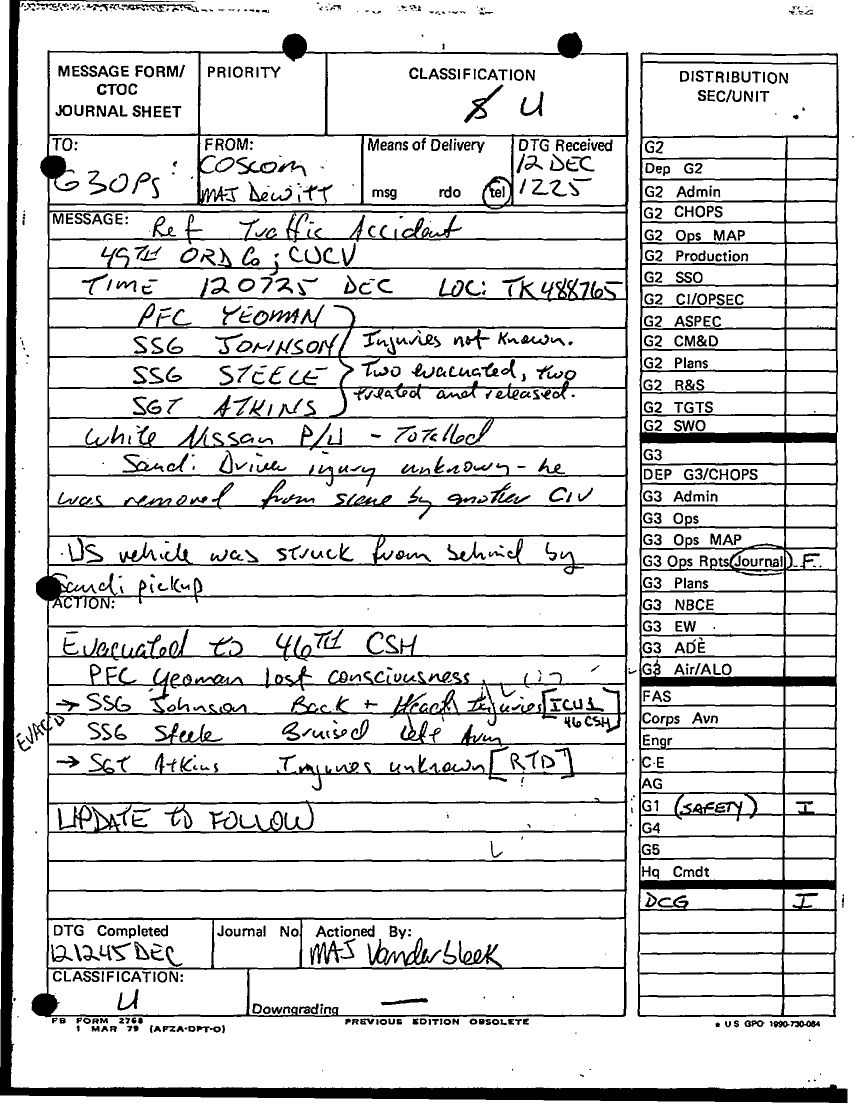 MESSAGE FORM/ CTOC JOURNAL SHEET
PRIORITY
CLASSIFICATION
U
TO:
G3 OPs
FROM:
COSCOM
MAJ DeWitt
Means of Delivery
msg rdo tel
DTG Received
12 DEC
1225
MESSAGE: Ref Traffic Accident
49TH ORD Co; CUCV
TIME 120725 DEC LOC: TK488765
PFC YEOMAN
SSG JOHNSON Injuries not known.
SSG STEELE Two evacuated, two
SGT ATKINS treated and released.
White Nissan P/U - Totalled
Saudi Driver injury unknown - he
was removed from scene by another CIV
US vehicle was struck from behind by
Saudi pickup
ACTION:
Evacuated to 46TH CSH
PFC Yeoman lost consciousness
→ SSG Johnson Back + Head Injuries [ICU 1
46 CSH]
EVAC'D
SSG Steele Bruised left Arm
→ SGT Atkins Injuries unknown [RTD]
UPDATE TO FOLLOW
DTG Completed
121245 DEC
Journal No
Actioned By:
MAJ Vanderbleek
CLASSIFICATION:
U
Downgrading —
FB FORM 2768
1 MAR 79 (AFZA-DPT-O)
PREVIOUS EDITION OBSOLETE
DISTRIBUTION
SEC/UNIT
G2
Dep G2
G2 Admin
G2 CHOPS
G2 Ops MAP
G2 Production
G2 SSO
G2 CI/OPSEC
G2 ASPEC
G2 CM&D
G2 Plans
G2 R&S
G2 TGTS
G2 SWO
G3
DEP G3/CHOPS
G3 Admin
G3 Ops
G3 Ops MAP
G3 Ops Rpts Journal F
G3 Plans
G3 NBCE
G3 EW
G3 ADE
G3 Air/ALO
FAS
Corps Avn
Engr
C-E
AG
G1 (SAFETY) I
G4
G5
Hq Cmdt
DCG I
* U S GPO 1990-730-084